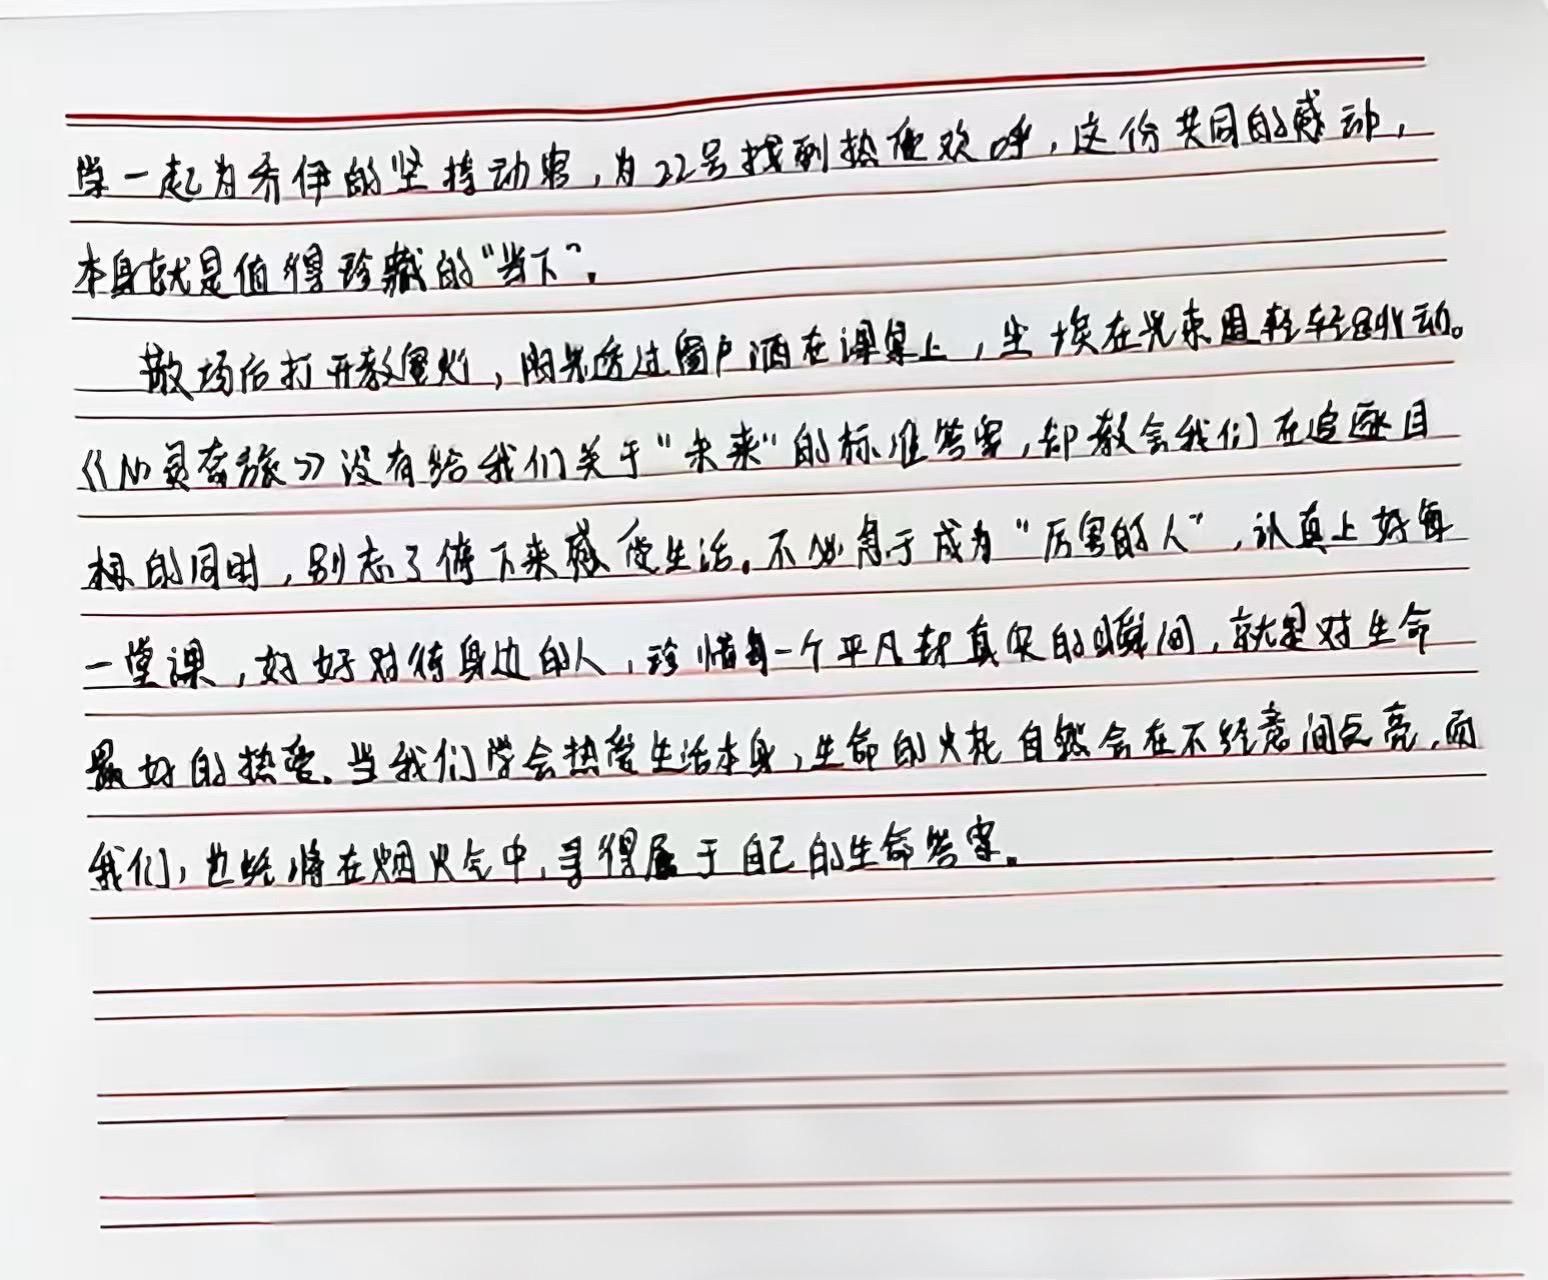 学一起为乔伊的坚持动容，为22号找到热爱欢呼，这份共同的感动，
本身就是值得珍藏的“当下”。
散场后打开教室灯，阳光透过窗户洒在课桌上，尘埃在光束里轻轻跳动。
《心灵奇旅》没有给我们关于“未来”的标准答案，却教会我们在追逐目
标的同时，别忘了停下来感受生活。不必急于成为“厉害的人”，认真上好每
一堂课，好好对待身边的人，珍惜每一个平凡却真实的瞬间，就是对生命
最好的热爱。当我们学会热爱生活本身，生命的火花自然会在不经意间点亮，而
我们，也终将在烟火气中，寻得属于自己的生命答案。